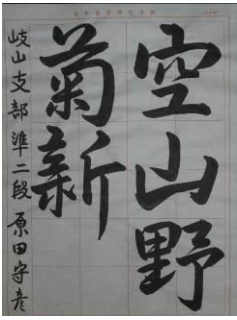 空山野
菊新
岐山支部 準二段 原田守彦